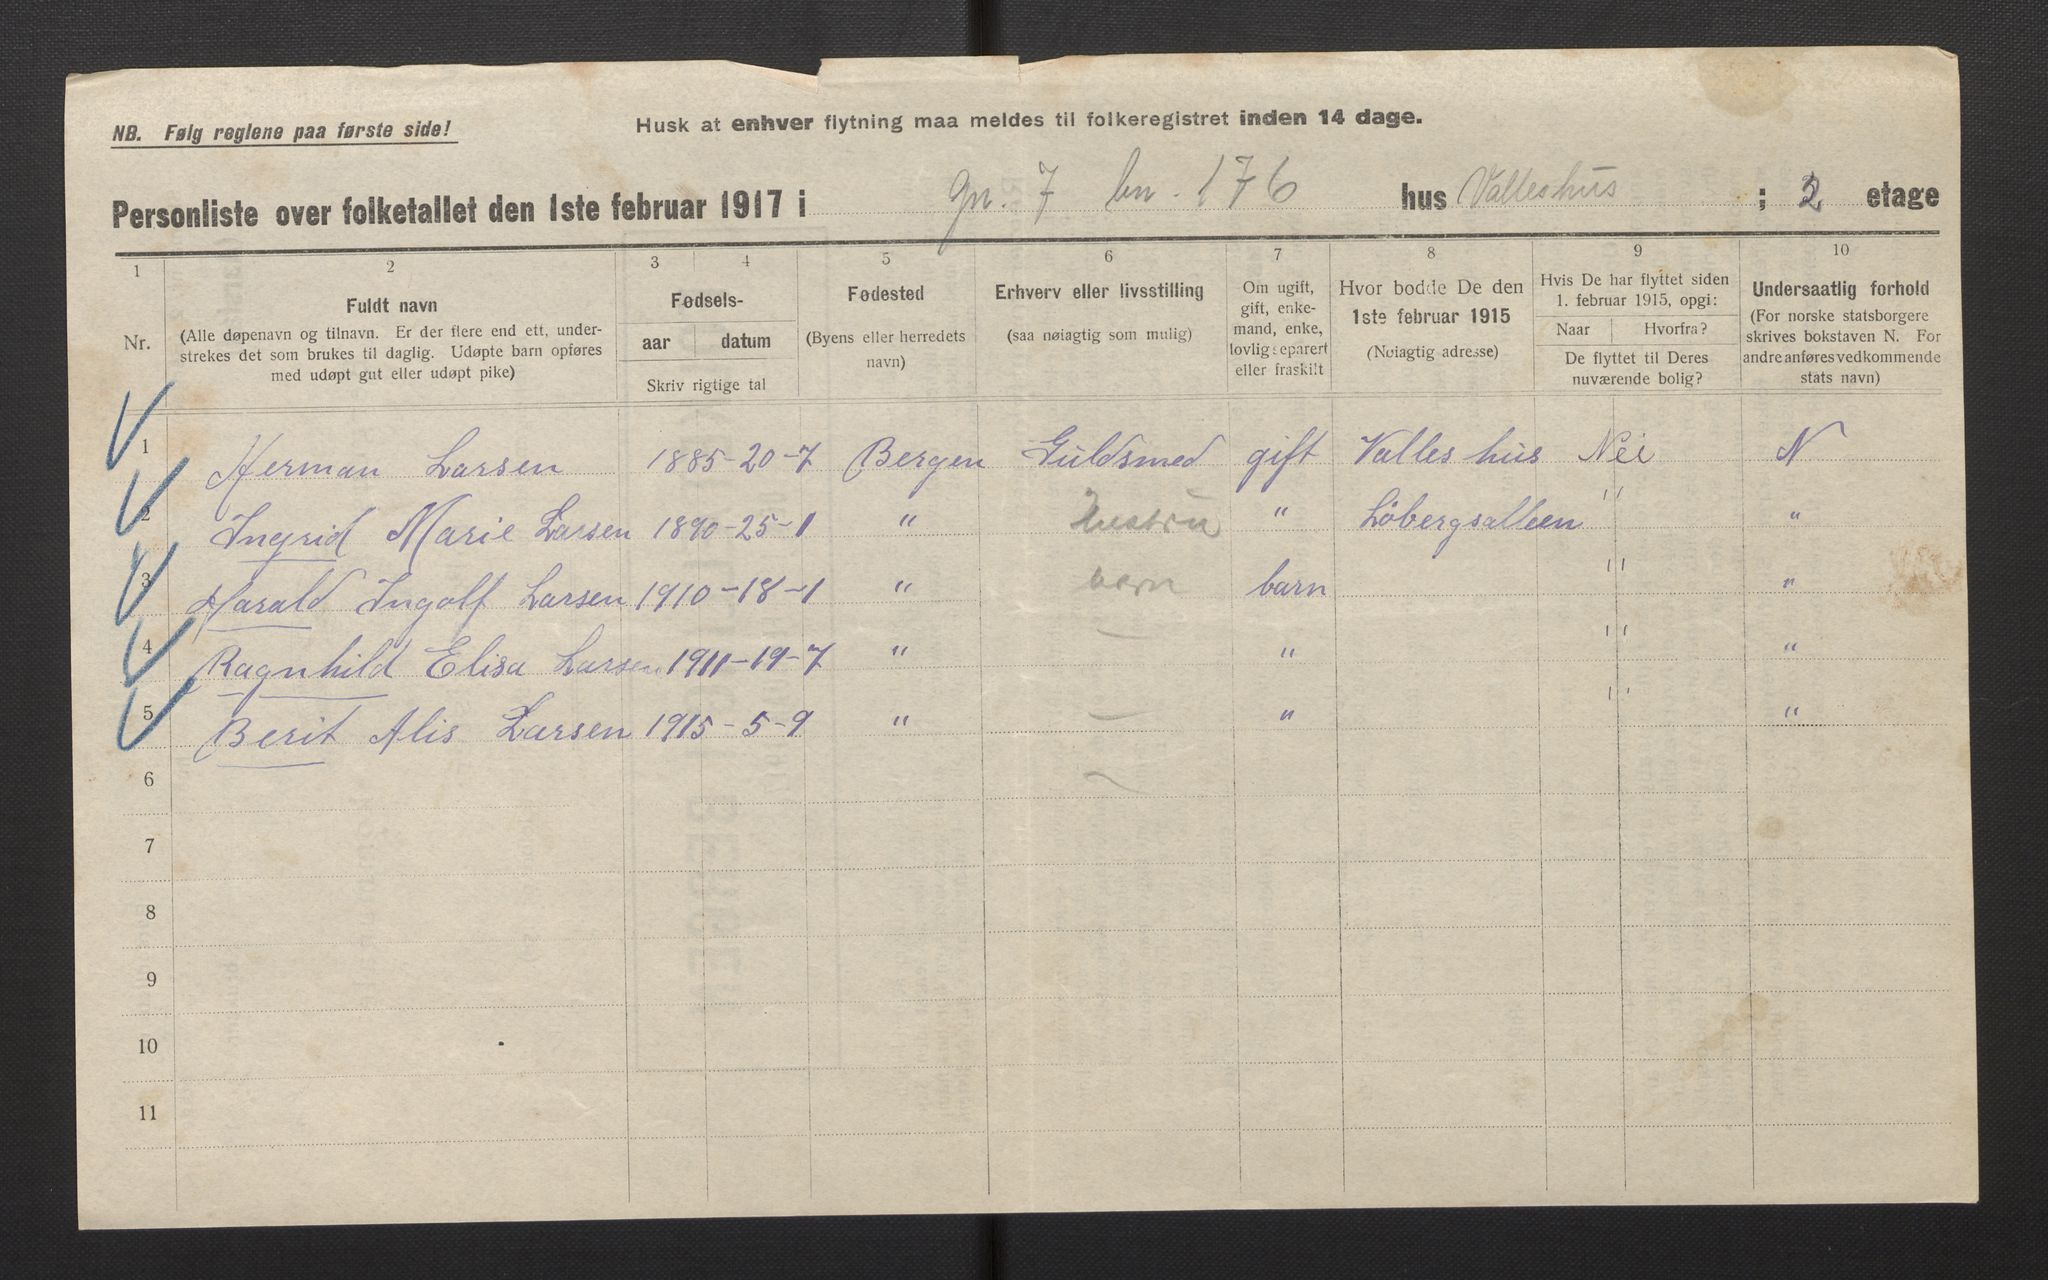 NB. Følg reglene paa første side! Husk at enhver flytning maa meldes til folkeregistret inden 14 dage.
Personliste over folketallet den 1ste februar 1917 i gn. 7 bn. 176 hus Valleshus ; 2 etage
1 2 3 4 5 6 7 8 9 10
Nr.
Fuldt navn
(Alle døpenavn og tilnavn. Er der flere end ett, under-
strekes det som brukes til daglig. Udøpte barn opføres
med udøpt gut eller udøpt pike)
Fødsels-
aar datum
Skriv rigtige tal
Fødested
(Byens eller herredets
navn)
Erhverv eller livsstilling
(saa nøiagtig som mulig)
Om ugift,
gift, enke-
mand, enke,
lovlig separert
eller fraskilt
Hvor bodde De den
1ste februar 1915
(Nøiagtig adresse)
Hvis De har flyttet siden
1. februar 1915, opgi:
Naar Hvorfra?
De flyttet til Deres
nuværende bolig?
Undersaatlig forhold
(For norske statsborgere
skrives bokstaven N. For
andre anføres vedkommende
stats navn)
1 Herman Larsen 1885-20-7 Bergen Guldsmed gift Valles hus Nei N
2 Ingrid Marie Larsen 1890-25-1 " Hustru " Löbergsalleen " "
3 Harald Ingolf Larsen 1910-18-1 " barn barn " "
4 Ragnhild Elisa Larsen 1911-19-7 " — " " "
5 Berit Alis Larsen 1915-5-9 " — " " "
6
7
8
9
10
11